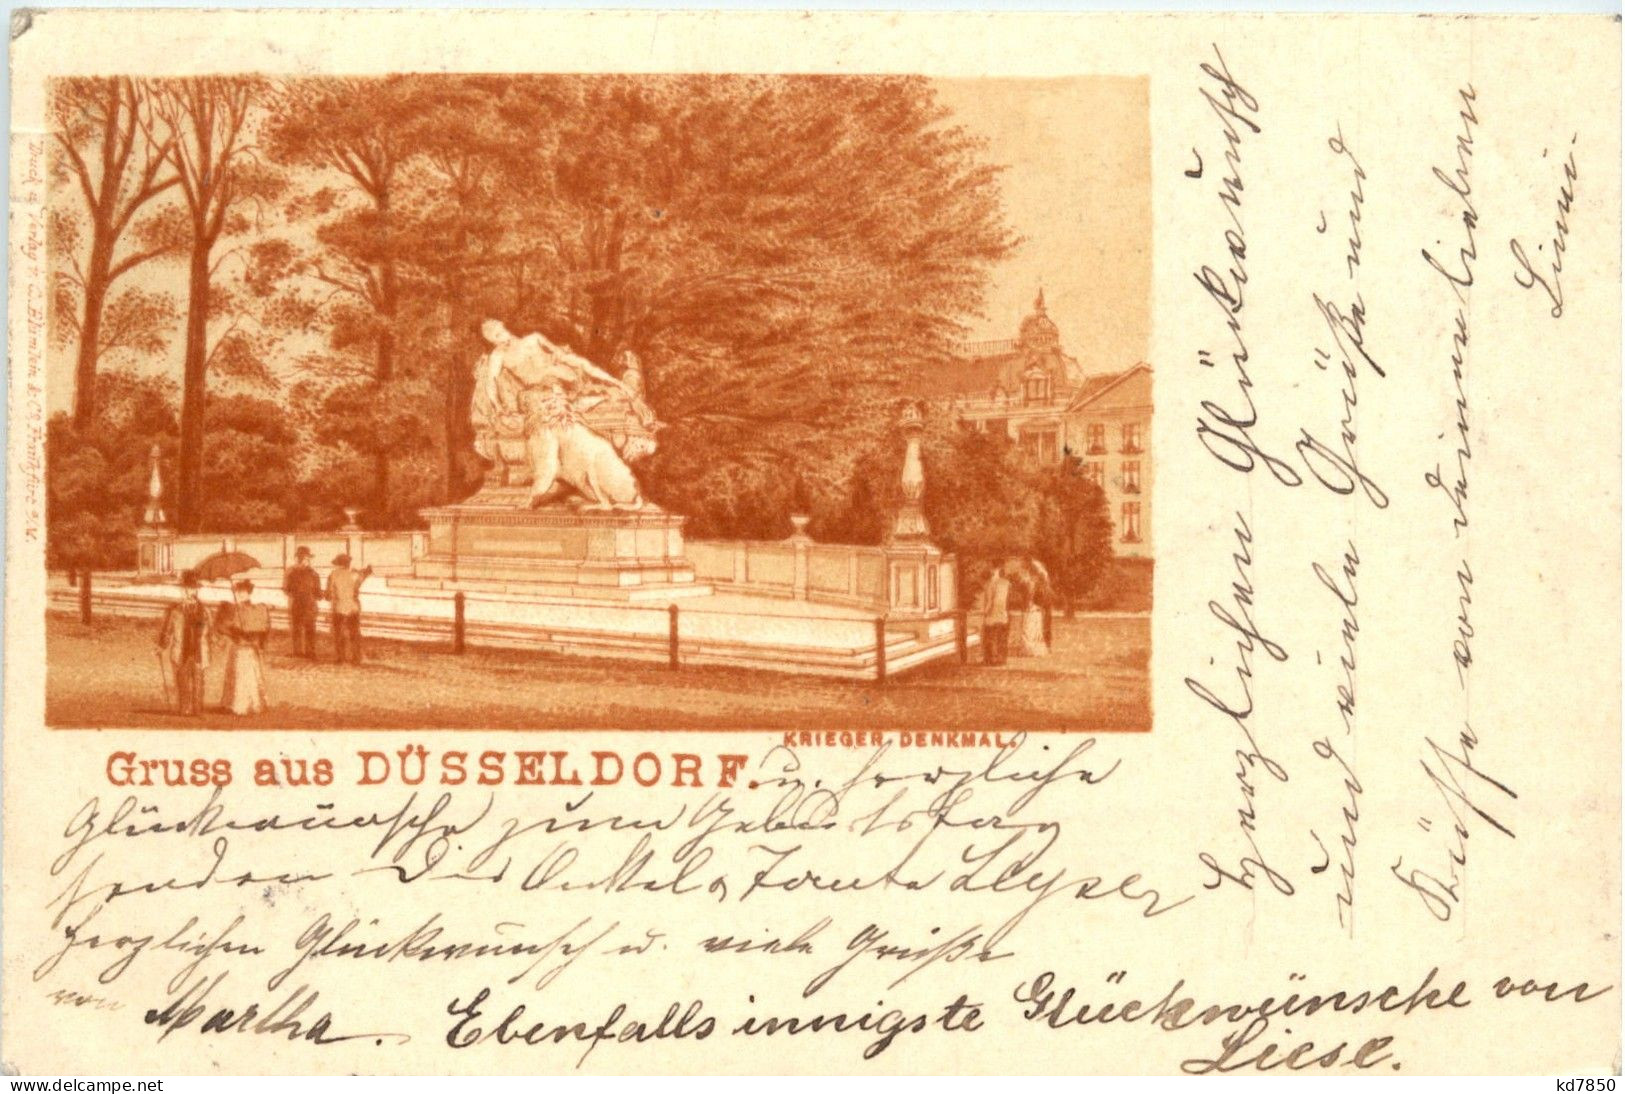 Druck u. Verlag v. C. Blümlein & Co. Frankfurt a/M.
KRIEGER-DENKMAL.
Gruss aus DÜSSELDORF.
u. herzliche
Glückwünsche zum Geburtstag
senden Dir Onkel u Tante
herzlichen Glückwunsch u. viele Grüße
von Martha. Ebenfalls innigste Glückwünsche von
Liese.
Herzlichen Glückwunsch
und viele Grüße und
Küsse von deiner lieben
www.delcampe.net
kd7850